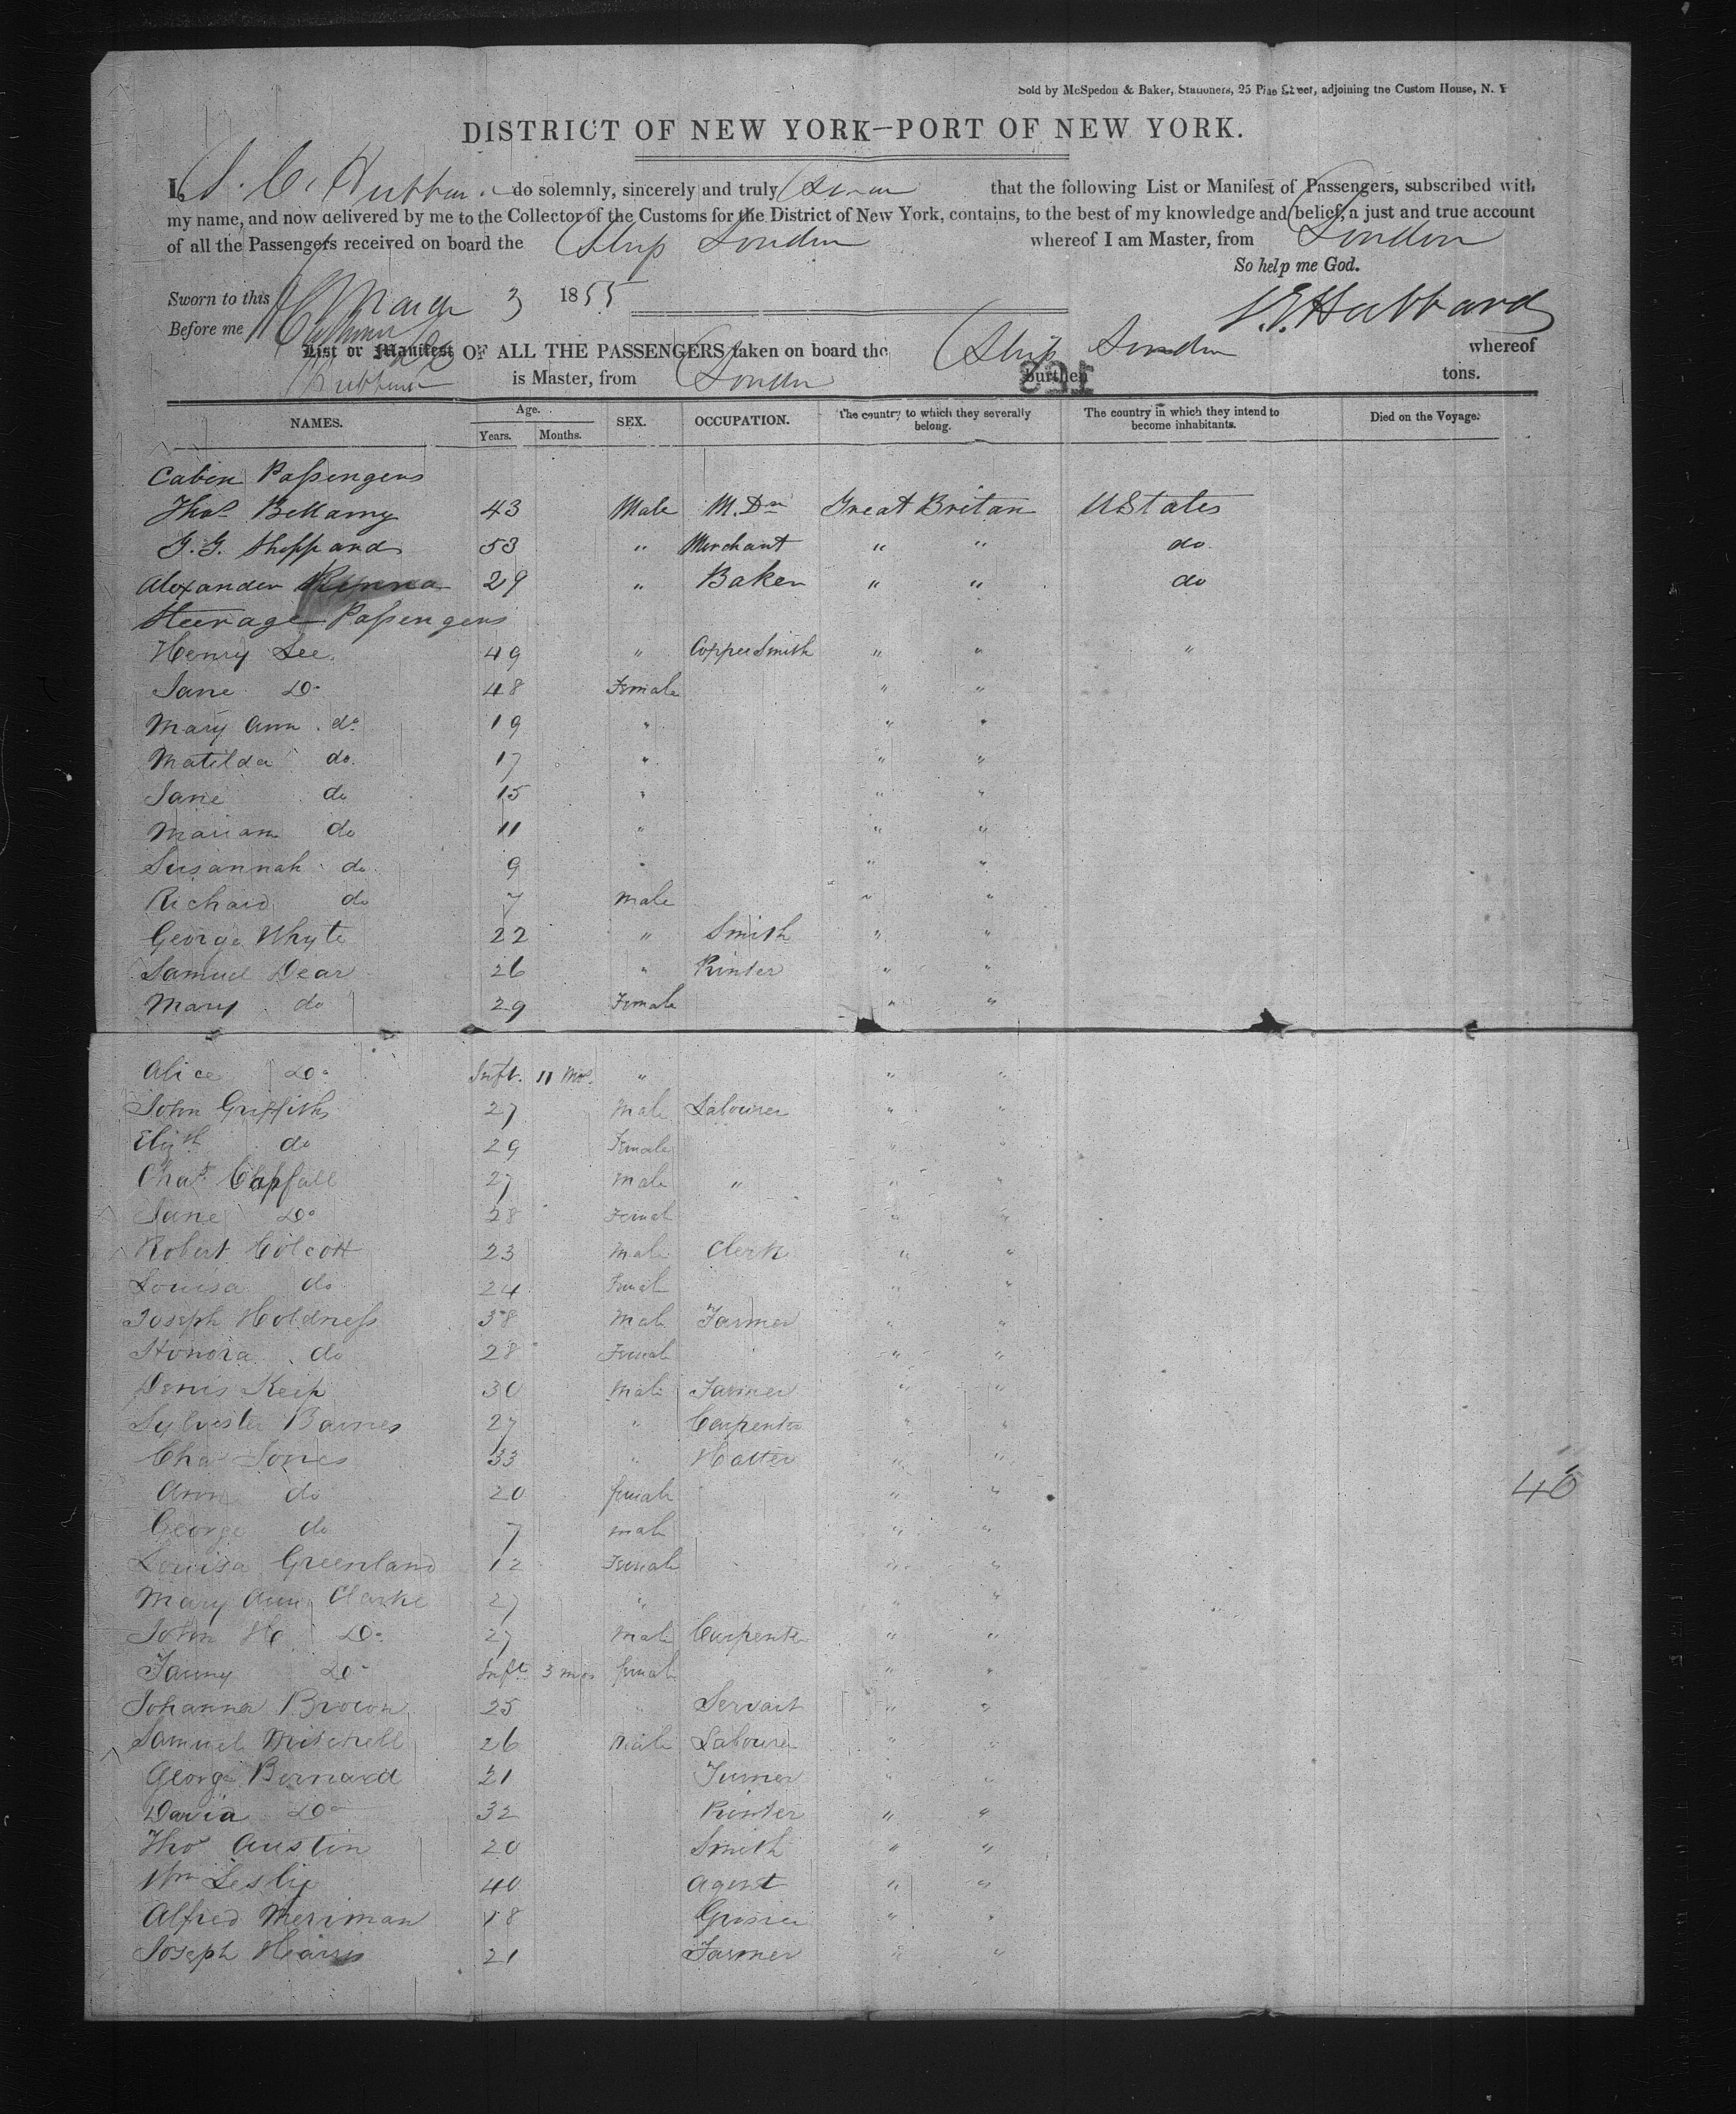 Sold by McSpedon & Baker, Stationers, 25 Pine Street, adjoining the Custom House, N. Y
DISTRICT OF NEW YORK—PORT OF NEW YORK.
I, do solemnly, sincerely and truly that the following List or Manifest of Passengers, subscribed with
my name, and now delivered by me to the Collector of the Customs for the District of New York, contains, to the best of my knowledge and belief, a just and true account
of all the Passengers received on board the Ship London whereof I am Master, from London
So help me God.
Sworn to this March 3 1855
Hubbard
Before me
List or Manifest OF ALL THE PASSENGERS taken on board the Ship London whereof
Hubbard is Master, from London burthen tons.
NAMES. Age. Years. Months. SEX. OCCUPATION. The country to which they severally belong. The country in which they intend to become inhabitants. Died on the Voyage.
Cabin Passengers
Thos Bellamy 43 Male M. Dr Great Britan U States
G. G. Sheppard 53 " Merchant " " do.
Alexander 29 " Baker " " do
Steerage Passengers
Henry Lee 49 " CopperSmith " " "
Jane Do 48 Female " "
Mary Ann do 19 " " "
Matilda do. 17 " " "
Jane do 15 " " "
Mariam do 11 " " "
Susannah do. 9 " " "
Richard do 7 Male " "
George Whyte 22 " Smith " "
Samuel Dear 26 " Printer " "
Mary do 29 Female " "
Alice Do Inft. 11 Mos. " " "
John Griffiths 27 Male Labourer " "
Elizth do 29 Female " "
Chas 27 Male " " "
Jane Do 28 Femal " "
Robert Colcott 23 Mal Clerk " "
Louisa do 24 Femal " "
Joseph Holdness 38 Mal Farmer " "
Honora do 28 Femal " "
Denis 30 Mal Farmer " "
Sylvester Barnes 27 " Carpenter " "
Chas Jones 33 " Hatter " "
Ann do 20 female " " 46
George do 7 mal " "
Louisa Greenland 12 Female " "
Mary Ann Clarke 27 " " "
John H Do 27 Male Carpenter " "
Fanny Do Inft 3 mos female " "
Johanna Brown 25 " Servant " "
Samuel Mitchell 26 Male Labourer " "
George Bernard 21 Turner " "
David Do 32 Printer " "
Thos Austin 20 Smith " "
Wm Leslie 40 Agent " "
Alfred Meriman 18 " "
Joseph Harris 21 Farmer " "